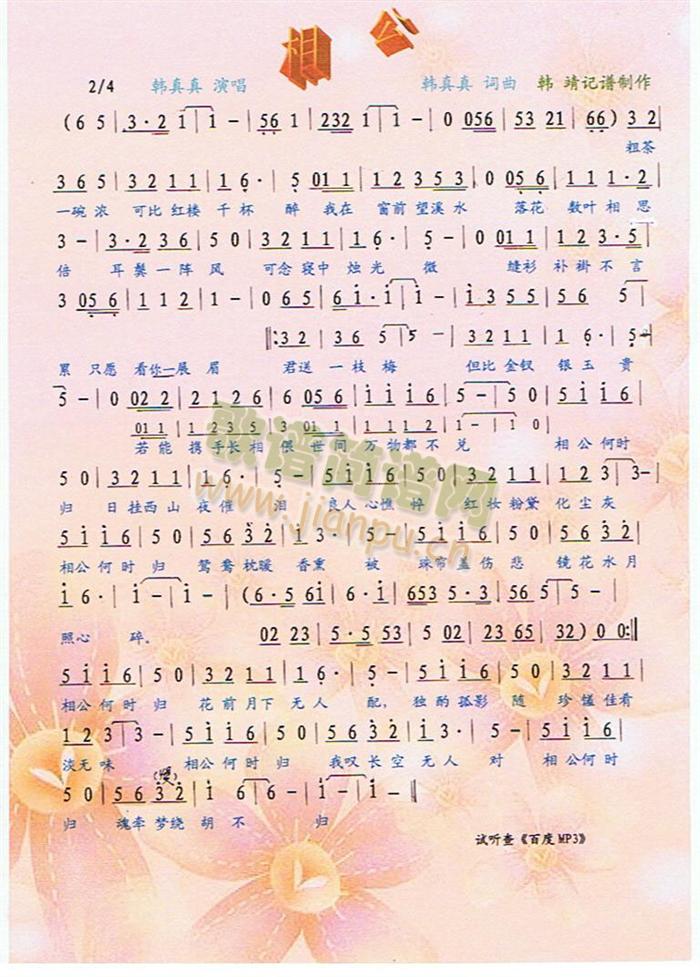 相公
2/4 韩真真 演唱 韩真真 词曲 韩 靖记谱制作
(6 5 | 3·2 1 1 | 1 - | 56 1 | 232 1 | 1 - | 0 056 | 53 21 | 66) 3 2 |
粗茶
3 6 5 | 3 2 1 1 | 6 · | 5 01 1 | 1 2 3 5 3 | 0 05 6 | 1 1 1·2 |
一碗浓 可比红楼 千杯 醉 我在 窗前望溪水 落花 数叶相思
3 - | 3·2 3 6 | 5 0 | 3 2 1 1 | 1 6 · | 5 - | 0 01 1 | 1 2 3·5 |
倍 耳鬓一阵 风 可念寝中 烛光 微 缝衫 补褂不言
3 05 6 | 1 1 2 | 1 - | 0 6 5 | 6 1·1 | 1 - | 1 3 5 5 | 5 6 5 |
‖:3 2 | 3 6 5 | 5 - | 3 2 1 1 | 1 6· |
累 只愿 看你一展 眉 君送 一枝梅 但比金钗 银玉 贵
5 - | 0 02 2 | 2 1 2 6 | 6 05 6 | 1 1 1 6 | 5 - | 5 0 | 5 1 1 6 |
01 1 | 1 2 3 5 | 3 01 1 | 1 1 1 2 |
若能 携手长相 偎 世间 万物都不 兑 相公何时
5 0 | 3 2 1 1 | 1 6 · | 5 - | 5 1 1 6 | 5 0 | 3 2 1 1 | 1 2 3 | 3 - |
归 日挂西山 夜催 泪 良人心憔 悴 红妆粉黛 化尘灰
5 1 1 6 | 5 0 | 5 6 3 2 | 1 3 · | 5 - | 5 1 1 6 | 5 0 | 5 6 3 2 |
相公何时 归 鸳鸯枕暖 香熏 被 珠帘盖伤 悲 镜花水月
1 6 · | 1 - | 1 - | (6·5 61 | 1 6· | 653 5·3 | 56 5 | 5 - |
照心 碎.
02 23 | 5·5 53 | 5 02 | 23 65 | 32) 0 0:‖
5 1 1 6 | 5 0 | 3 2 1 1 | 1 6 · | 5 - | 5 1 1 6 | 5 0 | 3 2 1 1 |
相公何时 归 花前月下 无人 配, 独酌孤影 随 珍馐佳肴
1 2 3 | 3 - | 5 1 1 6 | 5 0 | 5 6 3 2 | 1 3 · | 5 - | 5 1 1 6 |
淡无味 相公何时 归 我叹长空 无人 对 相公何时
(慢)
5 0 | 5 6 3 2 | 1 6 | 6 - | 1 - | 1 - ‖
归 魂牵梦绕 胡不 归
试听查《百度MP3》
歌谱简谱网
www.jianpu.cn